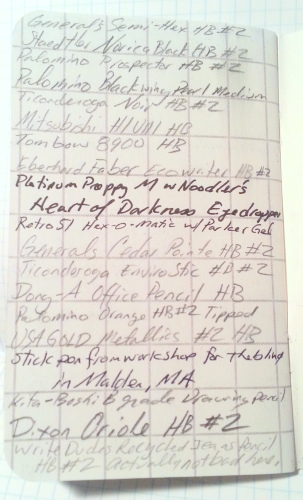 General's Semi-Hex HB #2
Staedtler Norica Black HB #2
Palomino Prospector HB #2
Palomino Blackwing Pearl Medium
Ticonderoga Noir HB #2
Mitsubishi HI UNI HB
Tombow 8900 HB
Eberhard Faber Ecowriter HB #2
Platinum Preppy M w Noodler's
Heart of Darkness Eyedropper
Retro 51 Hex-o-matic w/ Parker Gel
Generals Cedar Pointe HB #2
Ticonderoga EnviroStic HB #2
Dong-A Office Pencil HB
Palomino Orange HB #2 Tipped
USA GOLD Metallics #2 HB
Stick pen from workshop for the blind
in Malden, MA
Kita-Boshi B grade Drawing Pencil
Dixon Oriole HB #2
Write Dudes Recycled Jeans Pencil
HB #2 actually not bad here.